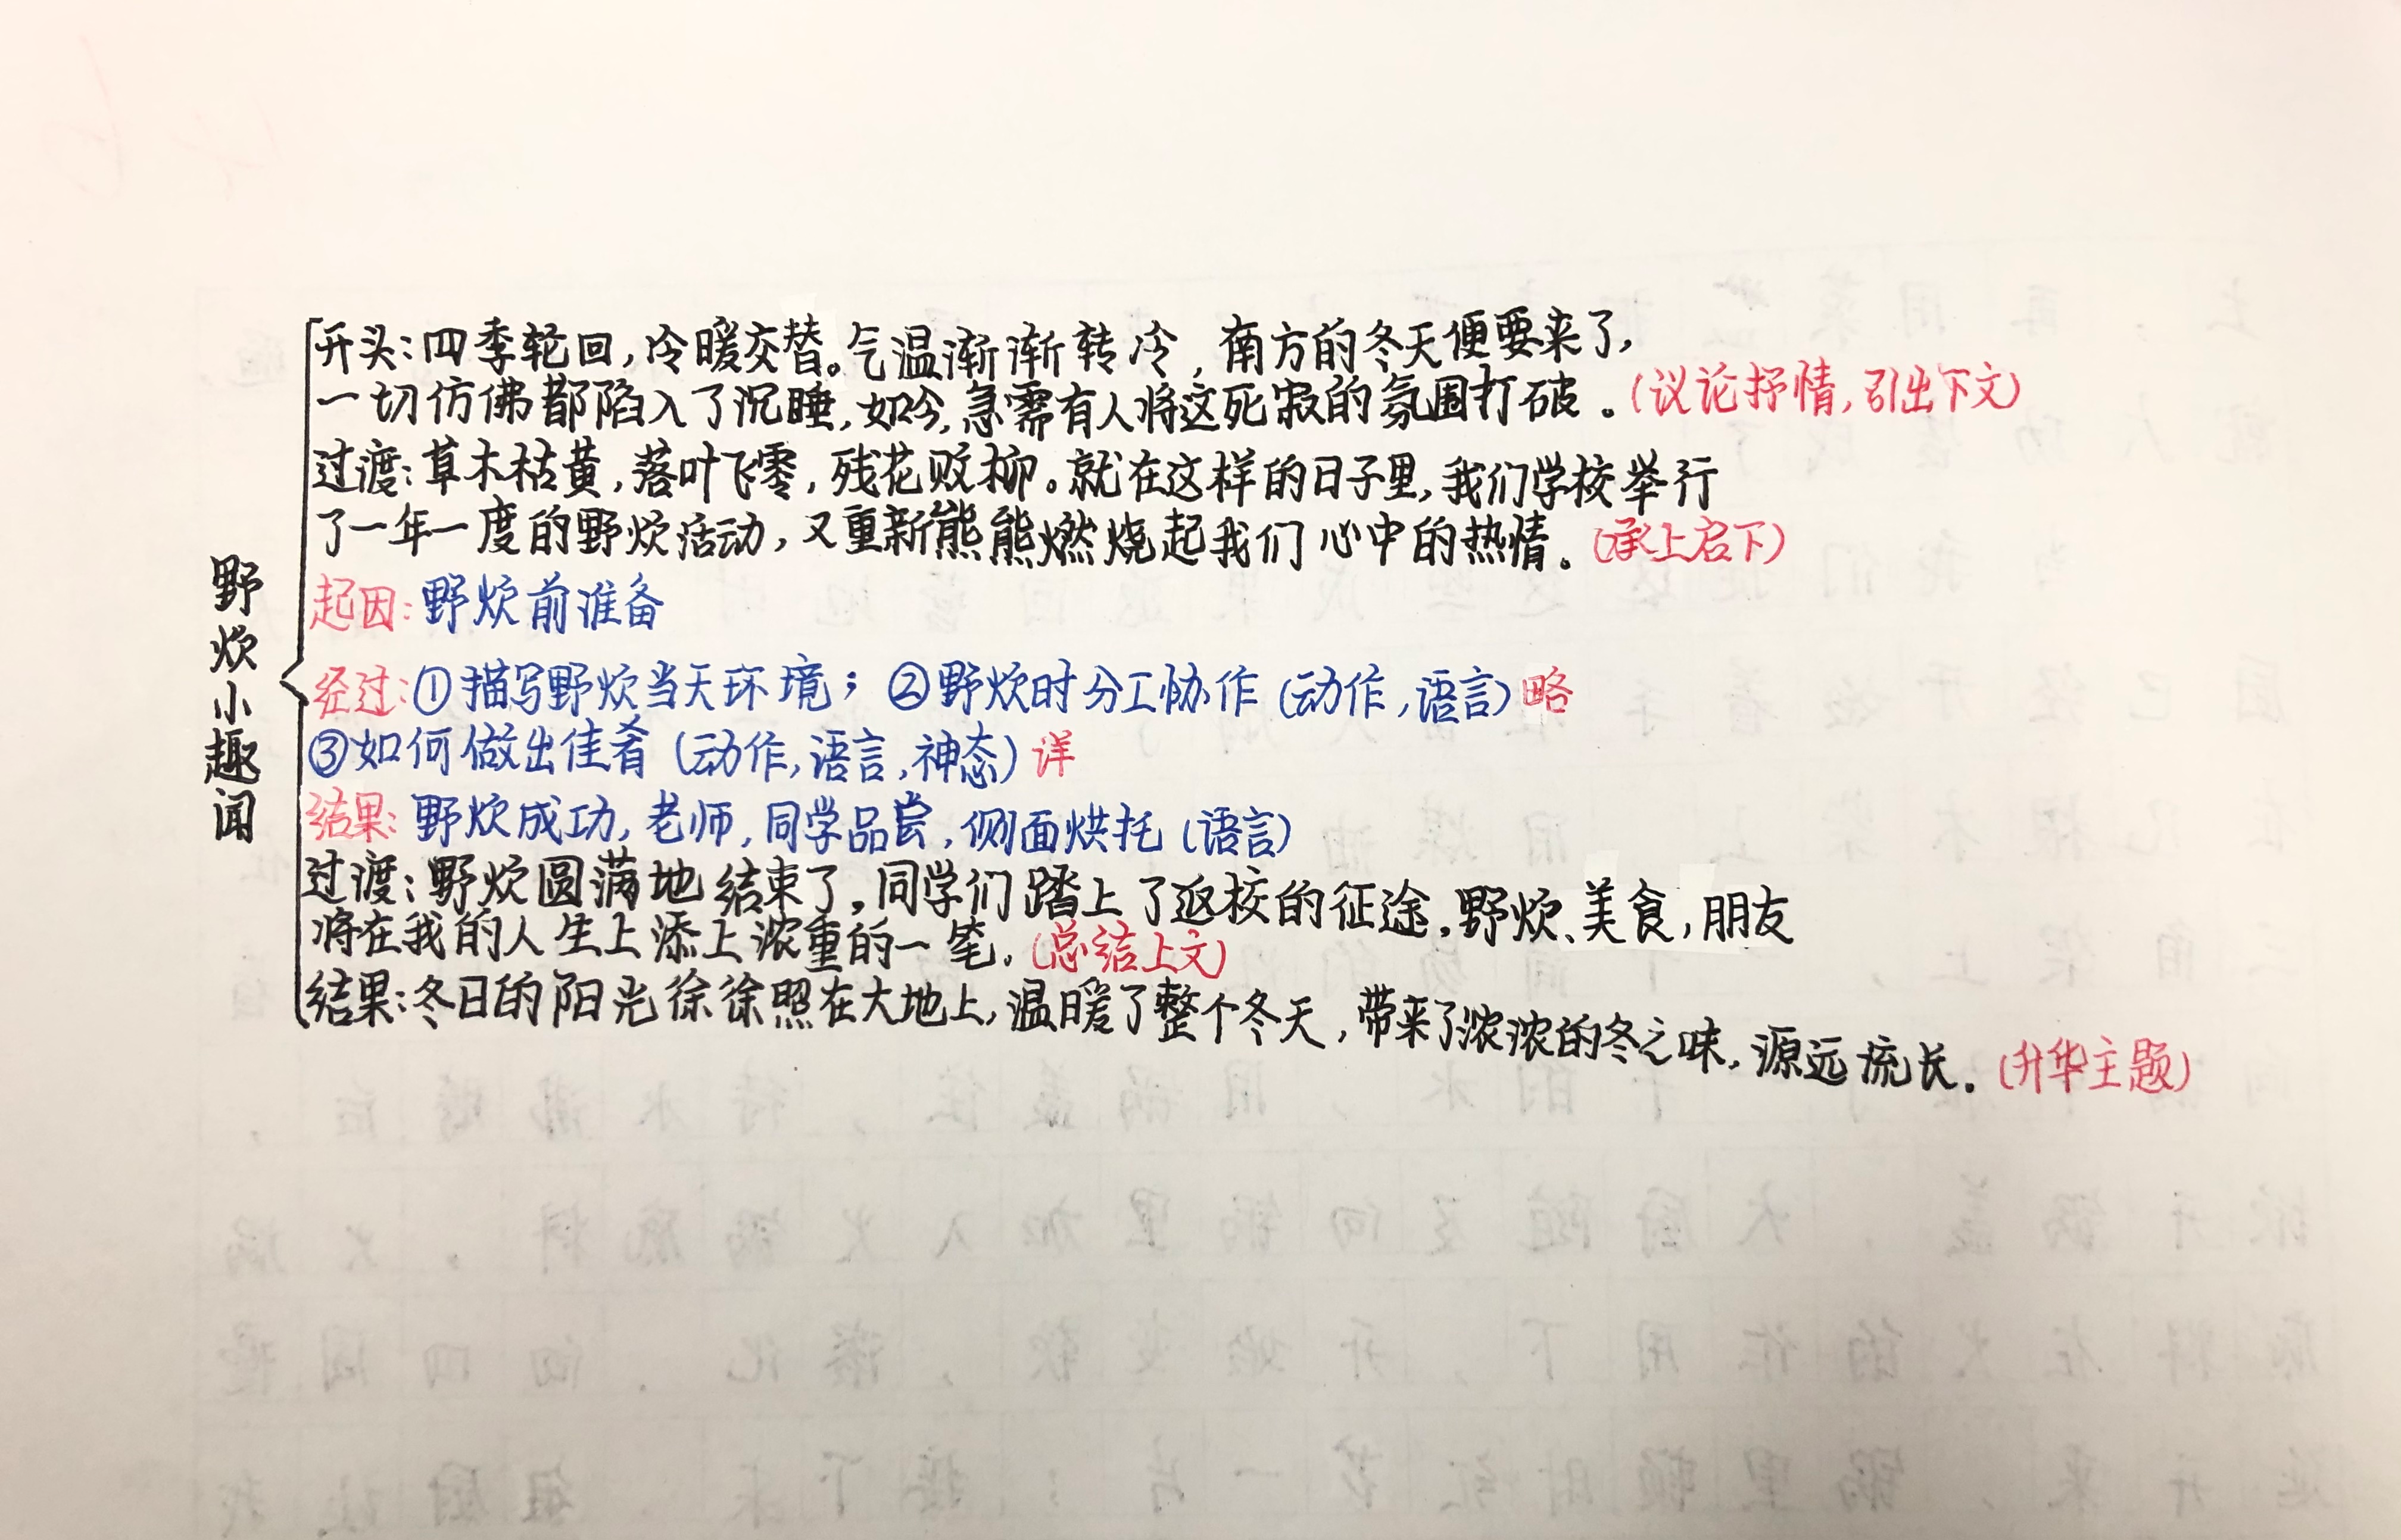 野炊小趣闻
开头:四季轮回,冷暖交替。气温渐渐转冷,南方的冬天便要来了,
一切仿佛都陷入了沉睡,如今,急需有人将这死寂的氛围打破。(议论抒情,引出下文)
过渡:草木枯黄,落叶飞零,残花败柳。就在这样的日子里,我们学校举行
了一年一度的野炊活动,又重新熊熊燃烧起我们心中的热情。(承上启下)
起因:野炊前准备
经过:①描写野炊当天环境;②野炊时分工协作(动作,语言)略
③如何做出佳肴(动作,语言,神态)详
结果:野炊成功,老师,同学品尝,侧面烘托(语言)
过渡:野炊圆满地结束了,同学们踏上了返校的征途,野炊、美食,朋友
将在我的人生上添上浓重的一笔。(总结上文)
结果:冬日的阳光徐徐照在大地上,温暖了整个冬天,带来了浓浓的冬之味,源远流长。(升华主题)